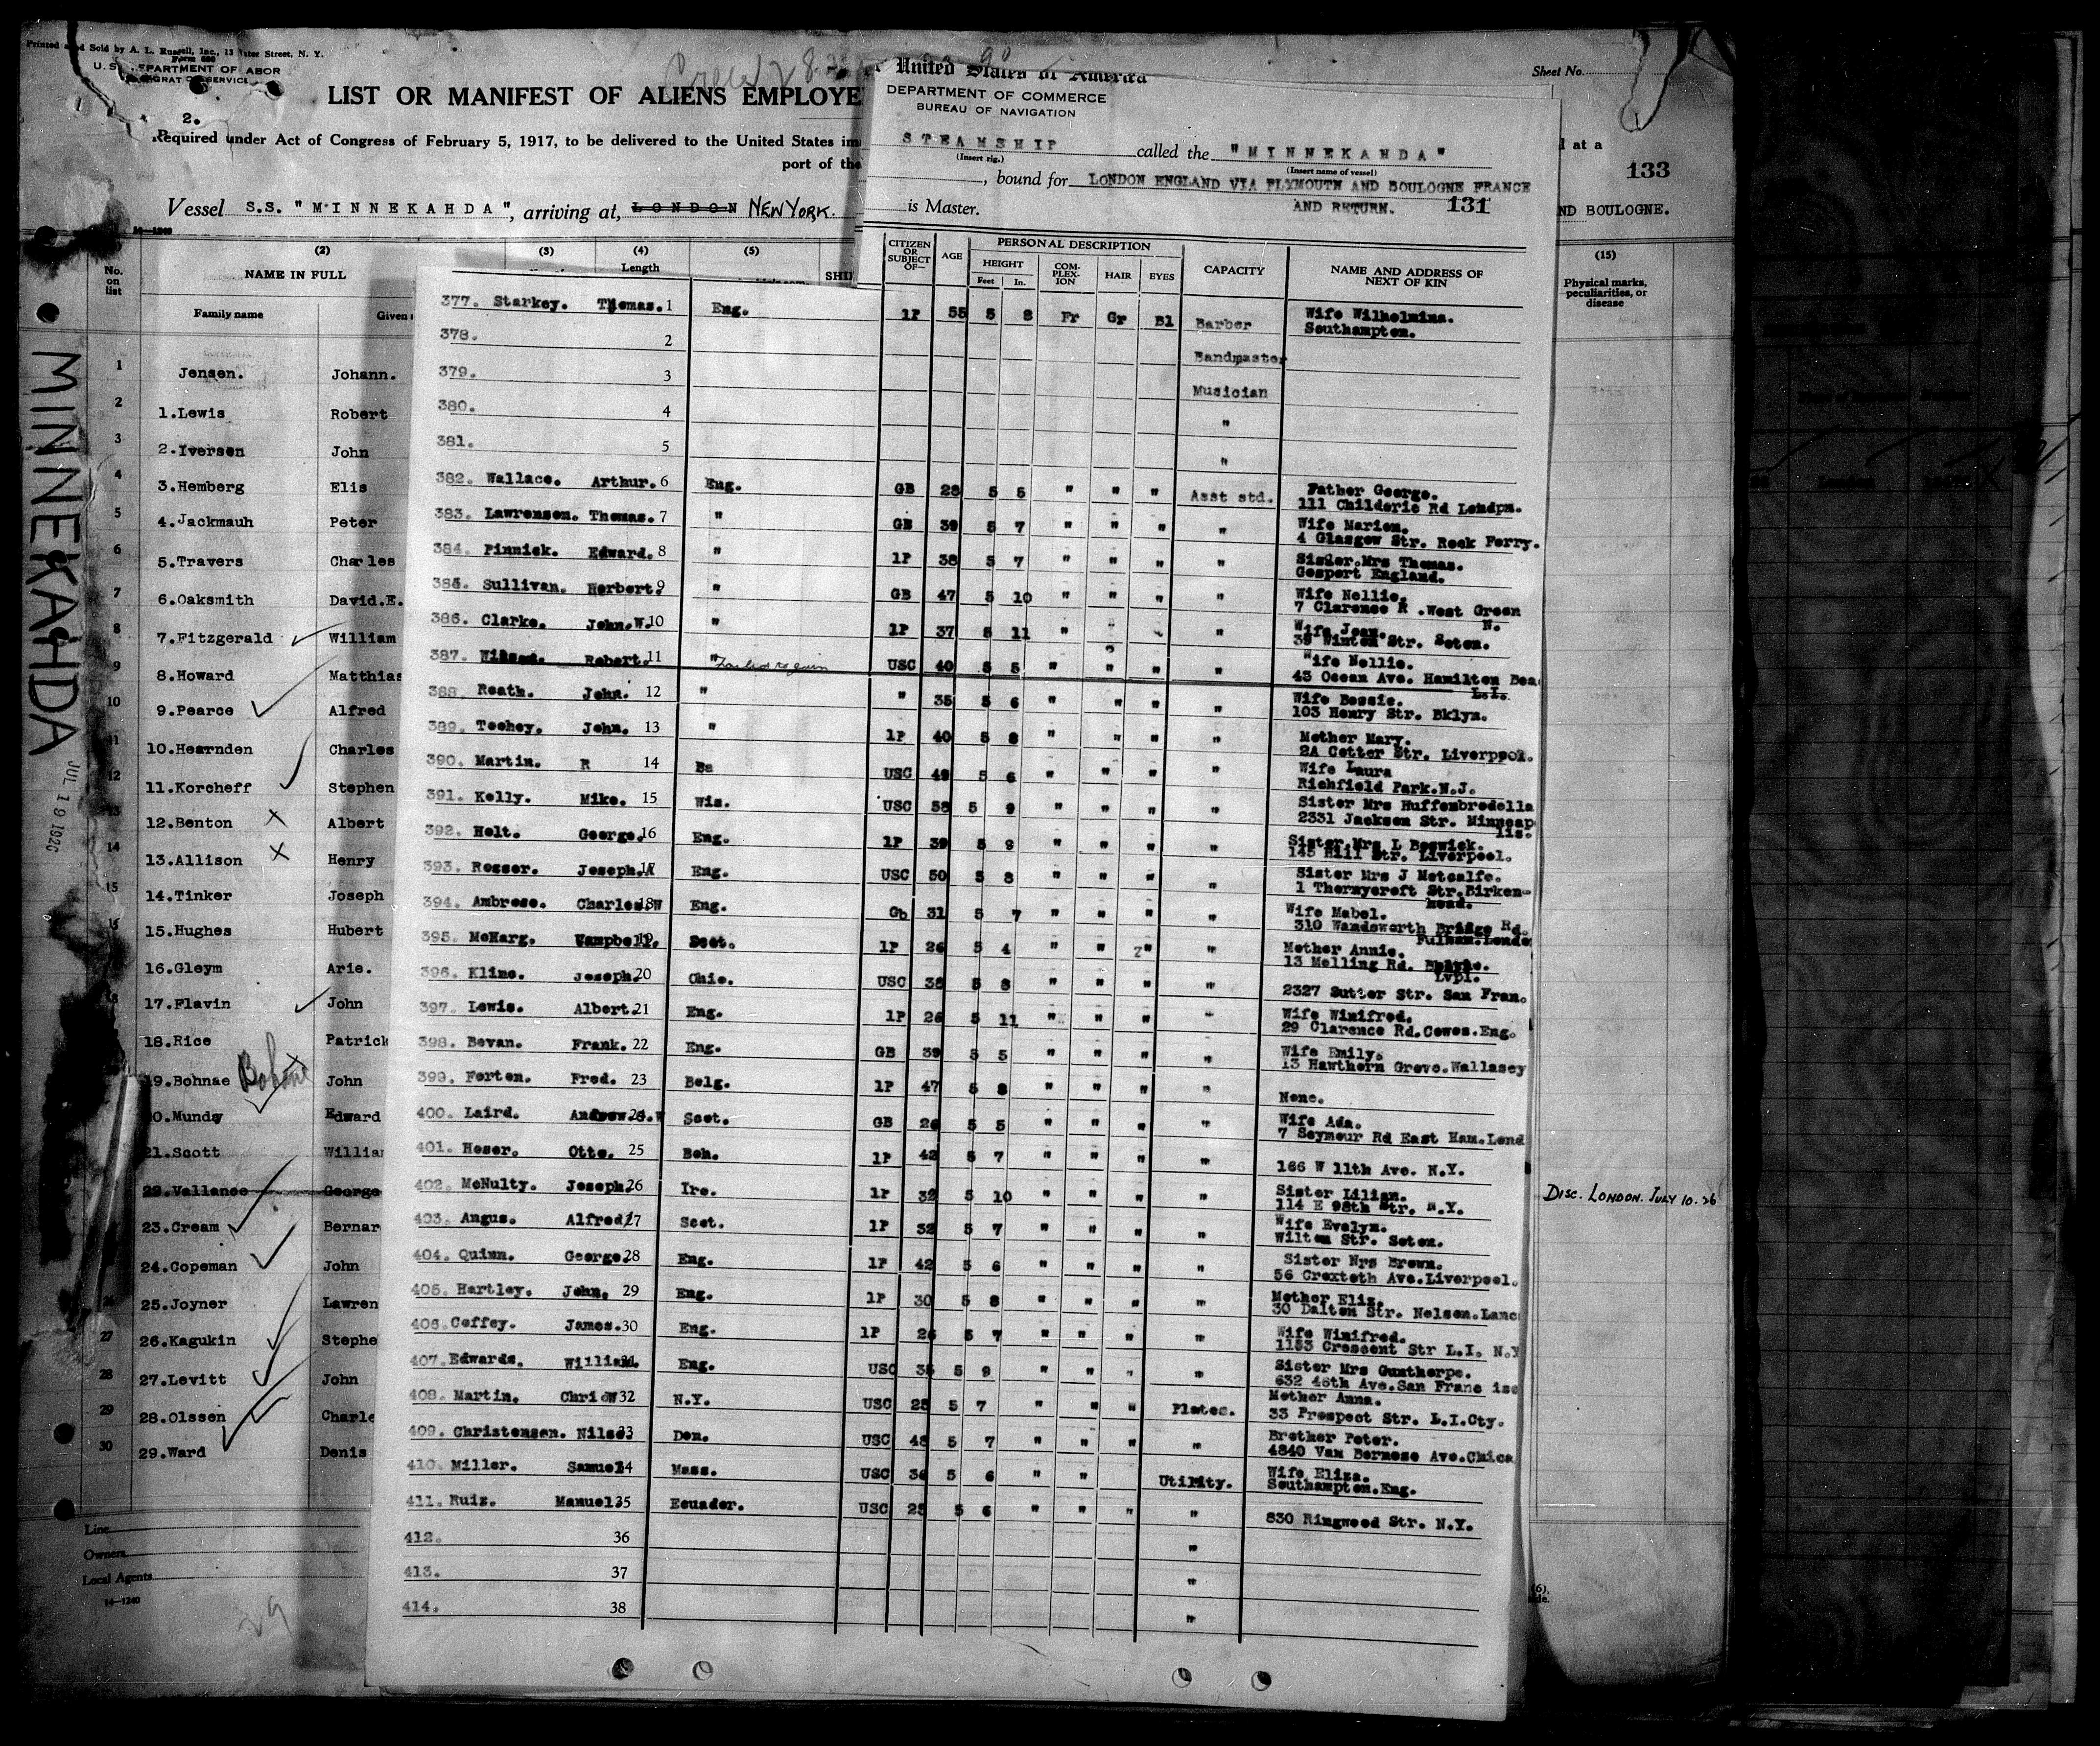 Printed and Sold by A. L. Russell, Inc., 13 Street, N. Y.
Form 680
U.S. DEPARTMENT OF ABOR
SERVICE
LIST OR MANIFEST OF ALIENS EMPLOYE
2.
Required under Act of Congress of February 5, 1917, to be delivered to the United States im
port of the
Vessel S.S. "MINNEKAHDA", arriving at, LONDON NEW YORK.
Sheet No.
d at a
133
ND BOULOGNE.
United States of America
DEPARTMENT OF COMMERCE
BUREAU OF NAVIGATION
STEAMSHIP called the "MINNEKAHDA"
(Insert rig.) (Insert name of vessel)
, bound for LONDON ENGLAND VIA PLYMOUTH AND BOULOGNE FRANCE
is Master. AND RETURN. 131
MINNEKAHDA
JUL 19 1926
No. on list
(2)
NAME IN FULL
Family name Given
(3) (4) (5)
Length
(15)
Physical marks, peculiarities, or disease
1 Jensen. Johann.
2 1.Lewis Robert
3 2.Iversen John
4 3.Hemberg Elis
5 4.Jackmauh Peter
6 5.Travers Charles
7 6.Oaksmith David.E.
8 7.Fitzgerald William
9 8.Howard Matthias
10 9.Pearce Alfred
11 10.Hearnden Charles
12 11.Korcheff Stephen
13 12.Benton Albert
14 13.Allison Henry
15 14.Tinker Joseph
16 15.Hughes Hubert
16.Gleym Arie.
18 17.Flavin John
18.Rice Patrick
19.Bohnae John
0.Mundy Edward
21.Scott Willia
22.Vallance George
23.Cream Bernar
24.Copeman John
26 25.Joyner Lawren
27 26.Kagukin Stephe
28 27.Levitt John
29 28.Olssen Charle
30 29.Ward Denis
Line
Owners
Local Agents
14-1240
29
DISC. LONDON. JULY 10.26
CITIZEN OR SUBJECT OF— AGE PERSONAL DESCRIPTION CAPACITY NAME AND ADDRESS OF NEXT OF KIN
HEIGHT COMPLEXION HAIR EYES
Feet In.
377. Starkey. Thomas. 1 Eng. 1P 55 5 8 Fr Gr Bl Barber Wife Wilhelmina.
Southampton.
378. 2 Bandmaster
379. 3 Musician
380. 4 "
381. 5 "
382. Wallace. Arthur. 6 Eng. GB 28 5 5 " " " Asst std. Father George.
111 Childeric Rd London.
383. Lawrenson. Thomas. 7 " GB 39 5 7 " " " " Wife Marion.
4 Glasgow Str. Rock Ferry.
384. Pinnick. Edward. 8 " 1P 38 5 7 " " " " Sister.Mrs Thomas.
Gosport England.
385. Sullivan. Herbert. 9 " GB 47 5 10 " " " " Wife Nellie.
7 Clarence R .West Green
N.
386. Clarke. John.W. 10 " 1P 37 5 11 " " " Wife Jean.
Winton Str. Soton.
387. Robert. 11 " Failed to join USC 40 5 5 " " " " Wife Nellie.
43 Ocean Ave. Hamilton Bea
L.I.
388. Reath. John. 12 " " 35 5 6 " " " " Wife Bessie.
103 Henry Str. Bklyn.
389. Teehey. John. 13 " 1P 40 5 8 " " " " Mother Mary.
2A Cotter Str. Liverpool.
390. Martin. R 14 USC 49 5 6 " " " " Wife Laura
Richfield Park.N.J.
391. Kelly. Mike. 15 Wis. USC 58 5 9 " " " " Sister Mrs Huffenbredella
2331 Jackson Str. Minneap
lis.
392. Holt. George. 16 Eng. 1P 39 5 9 " " " " Sister Mrs L Beswick.
145 Hill Str. Liverpool.
393. Rosser. Joseph. 17 Eng. USC 50 5 8 " " " " Sister Mrs J Metcalfe.
1 Thornycroft Str.Birken-
head.
394. Ambrose. Charles.W 18 Eng. Gb 31 5 7 " " " " Wife Mabel.
310 Wandsworth Bridge Rd.
Fulham.Londo
395. McHarg. 19 Scot. 1P 26 5 4 " " " " Mother Annie.
13 Melling Rd.
Lvpl.
396. Kline. Joseph. 20 Ohio. USC 38 5 8 " " " " 2327 Sutter Str. San Fran.
397. Lewis. Albert. 21 Eng. 1P 26 5 11 " " " " Wife Winifred.
29 Clarence Rd.Cowes.Eng.
398. Bevan. Frank. 22 Eng. GB 39 5 5 " " " " Wife Emily.
13 Hawthorn Grove.Wallasey
399. Forten. Fred. 23 Belg. 1P 47 5 8 " " " " None.
400. Laird. Andrew. 24 Scot. GB 26 5 5 " " " " Wife Ada.
7 Seymour Rd East Ham.Lond
401. Heser. Otto. 25 Boh. 1P 42 5 7 " " " " 166 W 11th Ave. N.Y.
402. McNulty. Joseph. 26 Ire. 1P 32 5 10 " " " " Sister Lilian.
114 E 98th Str. N.Y.
403. Angus. Alfred. 27 Scot. 1P 32 5 7 " " " " Wife Evelyn.
Wilton Str. Soton.
404. Quinn. George. 28 Eng. 1P 42 5 6 " " " " Sister Mrs Brown.
56 Croxteth Ave.Liverpool.
405. Hartley. John. 29 Eng. 1P 30 5 8 " " " " Mother Eliz.
30 Dalton Str. Nelson.Lanc
406. Coffey. James. 30 Eng. 1P 26 5 7 " " " " Wife Winifred.
1153 Crescent Str L.I. N.Y
407. Edwards. William. 31 Eng. USC 35 5 9 " " " " Sister Mrs Gunthorpe.
632 46th Ave.San Franc isc
408. Martin. Chris W 32 N.Y. USC 28 5 7 " " " Plates. Mother Anna.
33 Prospect Str. L.I.Cty.
409. Christensen. Nils. 33 Den. USC 48 5 7 " " " " Brother Peter.
4840 Van Bernese Ave.Chica
410. Miller. Samuel 34 Mass. USC 36 5 6 " " Utility. Wife Eliza.
Southampton.Eng.
411. Ruiz. Manuel. 35 Ecuador. USC 28 5 6 " " " " 830 Ringwood Str. N.Y.
412. 36 "
413. 37 "
414. 38 "